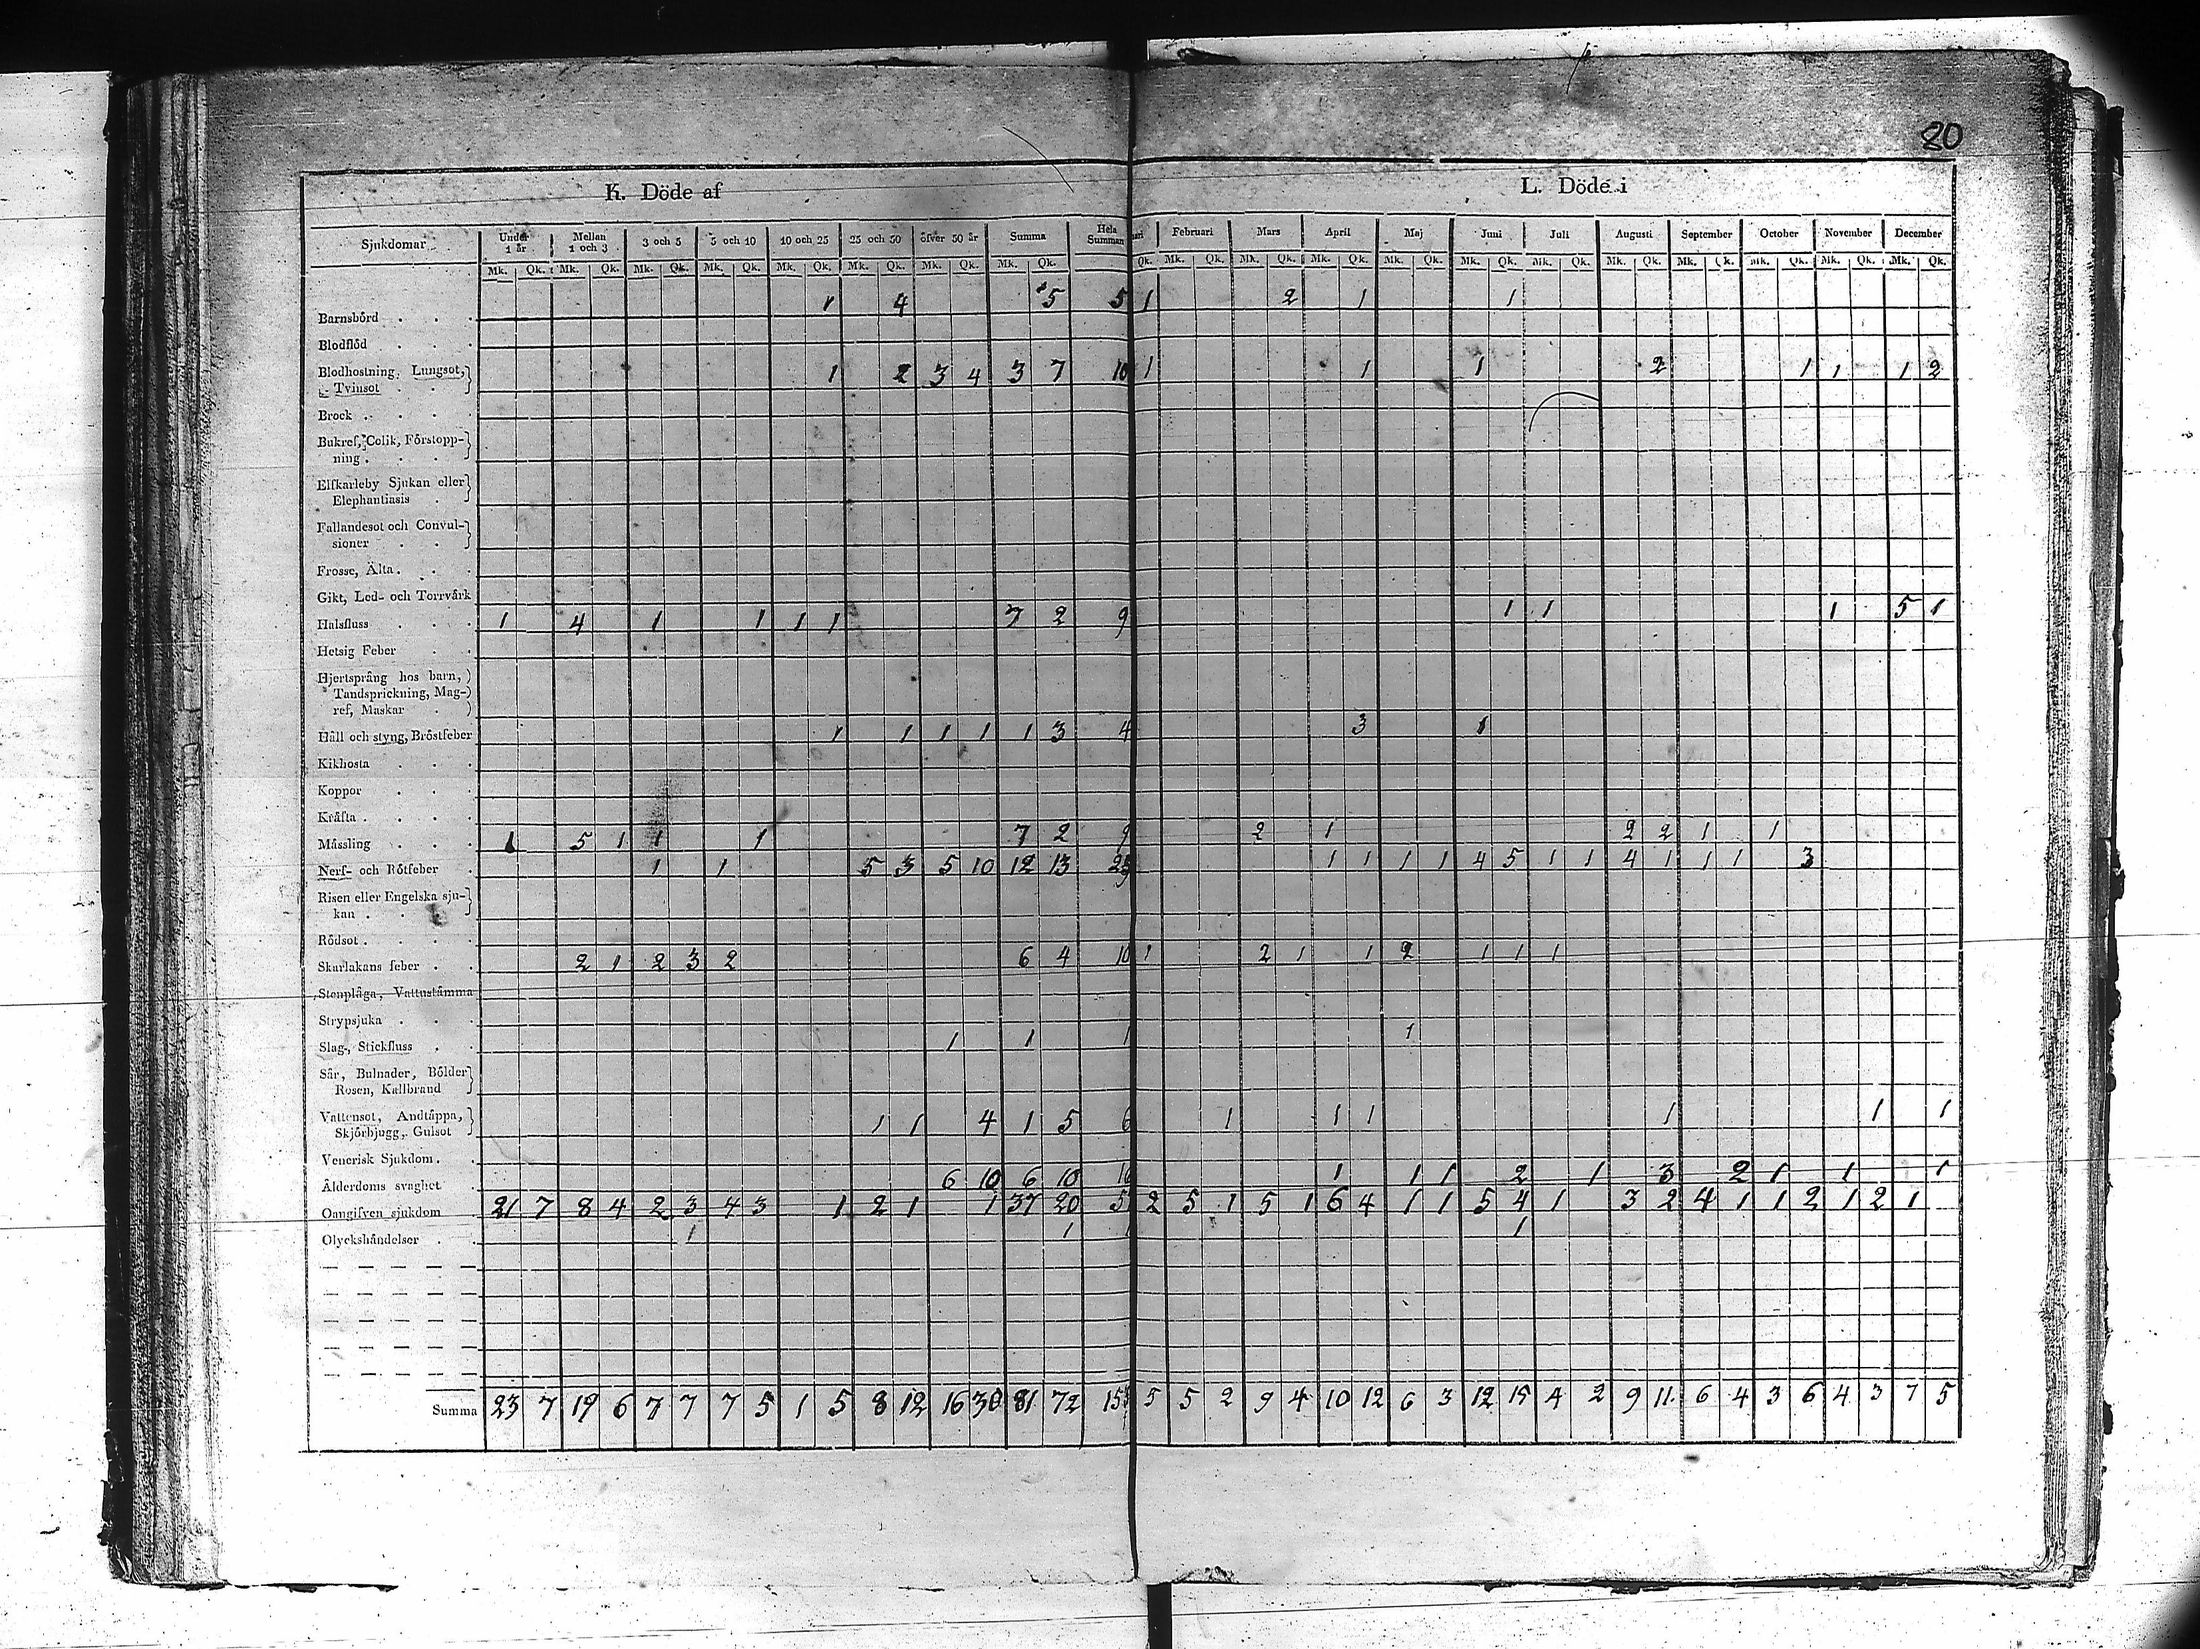 80
K. Döde af L. Döde i
Sjukdomar Under 1 år Mellan 1 och 3 3 och 5 5 och 10 10 och 25 25 och 50 öfver 50 år Summa Hela Summan ari Februari Mars April Maj Juni Juli Augusti September October November December
Mk. Qk. Mk. Qk. Mk. Qk. Mk. Qk. Mk. Qk. Mk. Qk. Mk. Qk. Mk. Qk. Qk. Mk. Qk. Mk. Qk. Mk. Qk. Mk. Qk. Mk. Qk. Mk. Qk. Mk. Qk. Mk. Qk. Mk. Qk. Mk. Qk. Mk. Qk.
Barnsbörd . . . 1 4 5 5 1 2 1 1
Blodflöd . . .
Blodhostning, Lungsot, 1 2 3 4 3 7 10 1 1 1 2 1 1 1 2
Tvinsot . .
Brock . . . .
Bukref, Colik, Förstopp-
ning . . . .
Elfkarleby Sjukan eller
Elephantiasis .
Fallandesot och Convul-
sioner . .
Frosse, Älta . . .
Gikt, Led- och Torrvärk
Halsfluss . . . 1 4 1 1 1 1 7 2 9 1 1 1 5 1
Hetsig Feber . .
Hjertsprång hos barn,
Tandsprickning, Mag-
ref, Maskar .
Håll och styng, Bröstfeber 1 1 1 1 1 3 4 3 1
Kikhosta . . .
Koppor . . .
Kräfta . . . .
Mässling . . . 1 5 1 1 1 7 2 9 2 1 2 2 1 1
Nerf- och Rötfeber . 1 1 5 3 5 10 12 13 25 1 1 1 1 4 5 1 1 4 1 1 1 3
Risen eller Engelska sju-
kan . . .
Rödsot . . . .
Skarlakans feber . . 2 1 2 3 2 6 4 10 1 2 1 1 2 1 1 1
Stenplåga, Vattustämma
Strypsjuka . . .
Slag-, Stickfluss . . 1 1 1 1
Sår, Bulnader, Bölder
Rosen, Kallbrand
Vattensot, Andtäppa, 1 1 4 1 5 6 1 1 1 1 1 1
Skjörbjugg, Gulsot
Venerisk Sjukdom . .
Ålderdoms svaghet . 6 10 6 10 16 1 1 1 2 1 3 2 1 1 1
Oangifven sjukdom . 21 7 8 4 2 3 4 3 1 2 1 1 37 20 5 2 5 1 5 1 6 4 1 1 5 4 1 3 2 4 1 1 2 1 2 1
Olyckshändelser . . 1 1 1 1
Summa 23 7 19 6 7 7 7 5 1 5 8 12 16 30 81 72 153 5 5 2 9 4 10 12 6 3 12 15 4 2 9 11 6 4 3 6 4 3 7 5